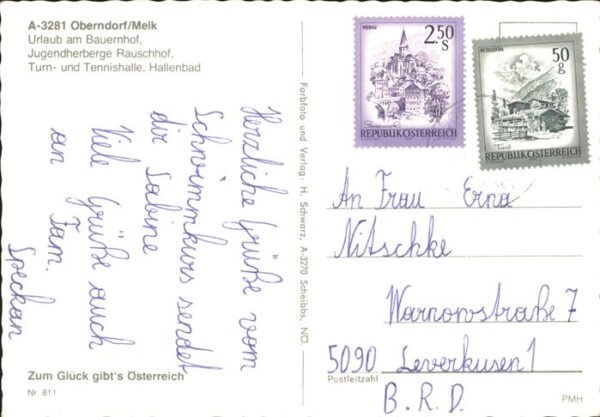 A-3281 Oberndorf/Melk
Urlaub am Bauernhof,
Jugendherberge Rauschhof,
Turn- und Tennishalle, Hallenbad
Herzliche Grüße vom
Schwimmkurs sendet
dir Sabine
Viele Grüße auch
an Fam.
Speckan
Zum Glück gibt's Österreich
Nr. 811
Farbfoto und Verlag: H. Schwarz, A-3270 Scheibbs, NÖ.
MURAU
2.50
S
REPUBLIK ÖSTERREICH
ZILLERTAL
50
g
Tirol
REPUBLIK ÖSTERREICH
An Frau Erna
Nitschke
Warnowstraße 7
5090 Leverkusen 1
Postleitzahl
B.R.D.
PMH